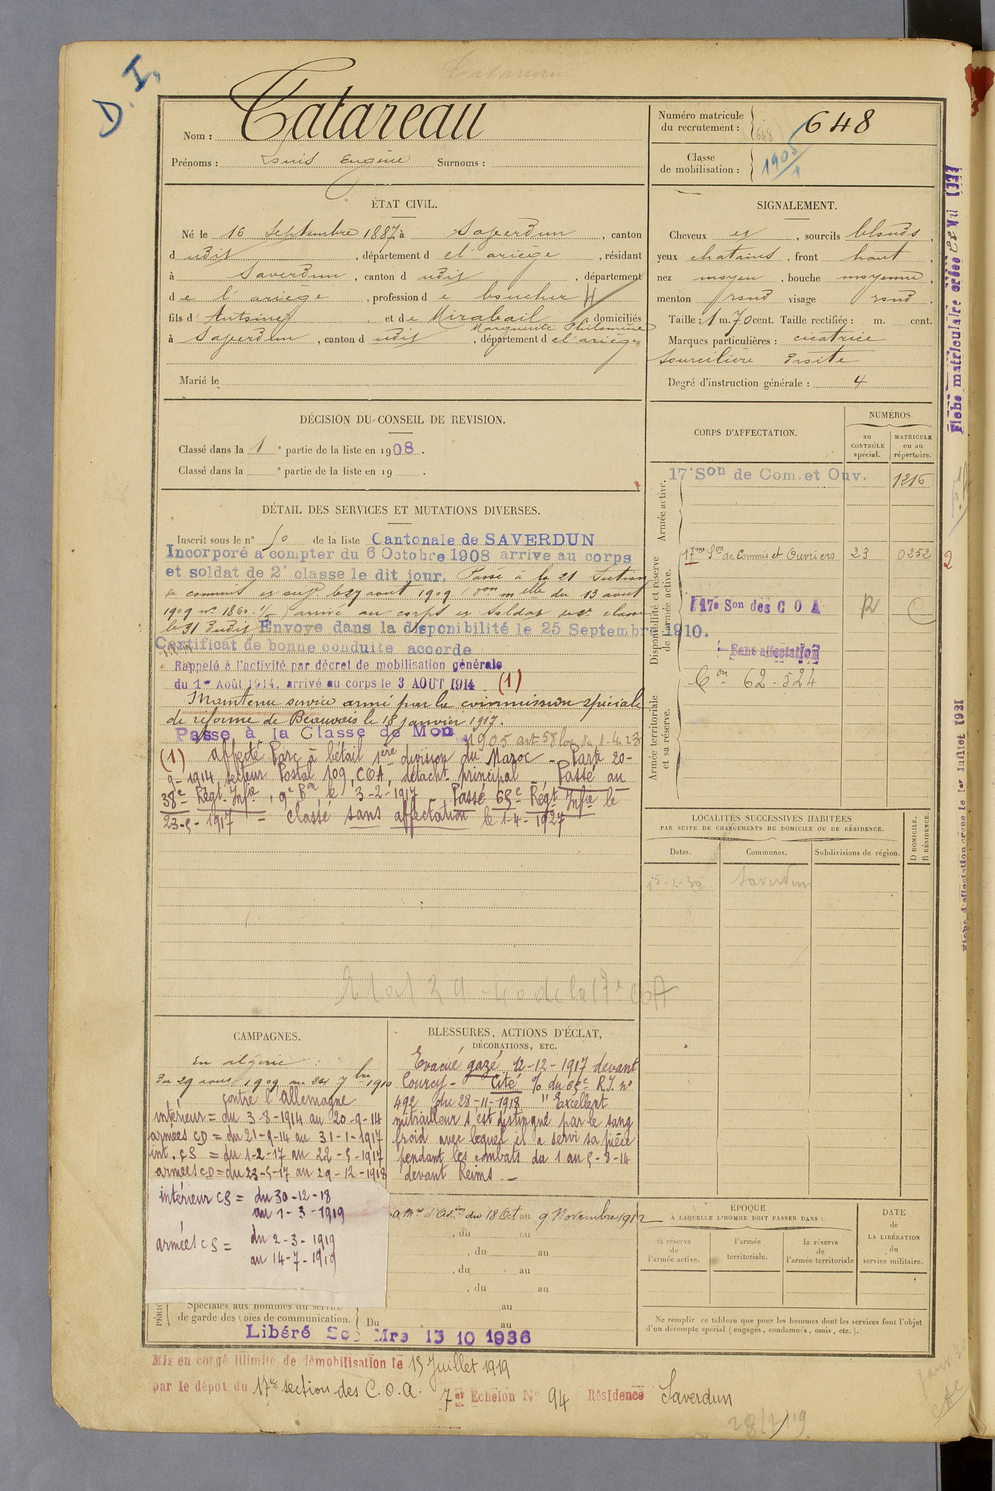 D. I.
Catareau
Nom : Catareau
Prénoms : Louis Eugène Surnoms :
Numéro matricule du recrutement : 648
Classe de mobilisation : 1905
ÉTAT CIVIL.
Né le 16 Septembre 1887 à Saverdun, canton
d udit, département d e l'ariège, résidant
à Saverdun, canton d udit, département
d e l'ariège, profession d e boucher
fils d' Antoine et de Mirabail domiciliés
Marguerite Philomène
à Saverdun, canton d udit, département d e l'ariège
Marié le
SIGNALEMENT.
Cheveux et, sourcils blonds,
yeux chatains, front haut,
nez moyen, bouche moyenne
menton rond visage rond
Taille : 1 m. 70 cent. Taille rectifiée : m. cent.
Marques particulières : cicatrice
sourcilière droite
Degré d'instruction générale : 4
DÉCISION DU CONSEIL DE REVISION.
Classé dans la 1e partie de la liste en 1908.
Classé dans la e partie de la liste en 19 .
DÉTAIL DES SERVICES ET MUTATIONS DIVERSES.
Inscrit sous le n° 50 de la liste Cantonale de SAVERDUN
Incorporé à compter du 6 Octobre 1908 arrivé au corps
et soldat de 2e classe le dit jour. Passé à la 21 Section
de commis et le 29 aout 1909 du 13 aout
1909 n° 1860. arrivé au corps et soldat de 2e classe
le 31 dudit Envoyé dans la disponibilité le 25 Septembre 1910.
Certificat de bonne conduite accorde
Rappelé à l'activité par décret de mobilisation générale
du 1er Août 1914, arrivé au corps le 3 AOUT 1914 (1)
Maintenu service armé par la commission spéciale
de réforme de Beauvais le 18 janvier 1917.
Passe à la Classe de Mob 1905 art 58 loi du 1-4-23
(1) affecté Parc à bétail 1ère division du Maroc - Park 20-
9-1914, secteur Postal 109, COA, détacht principal - Passé au
38e Régt Infie, 9e Bon le 3-2-1917 Passé 65e Régt Infie le
23-5-1917 - Classé sans affectation le 1-4-1927
CORPS D'AFFECTATION.
NUMÉROS
au CONTRÔLE spécial.
MATRICULE ou au répertoire.
Armée active.
17e Son de Com. et Ouv. 1216
Disponibilité et réserve de l'armée active.
17me Son de Commis et Ouvriers 23 0252
2
17e Son des C O A
Sans affectation
Armée territoriale et sa réserve.
62-524
LOCALITÉS SUCCESSIVES HABITÉES
PAR SUITE DE CHANGEMENTS DE DOMICILE OU DE RÉSIDENCE.
Dates. Communes. Subdivisions de région.
D DOMICILE. R RÉSIDENCE.
Saverdun
CAMPAGNES.
En algérie :
Du 29 aout 1909 au 24 7bre 1910
contre l'allemagne
intérieur = du 3-8-1914 au 20-9-14
armées CD = du 21-9-14 au 31-1-1917
int. CS = du 1-2-17 au 22-5-1917
armées CD = du 23-5-17 au 29-12-1918
intérieur CS = du 30-12-18
au 1-3-1919
armées CS = du 2-3-1919
au 14-7-1919
BLESSURES, ACTIONS D'ÉCLAT,
DÉCORATIONS, ETC.
Evacué gazé 12-12-1917 devant
Courcy - Cité % du 65e R.I. n°
492 du 28-11-1918 "Excellent
mitrailleur s'est distingué par le sang
froid avec lequel il a servi sa pièce
pendant les combats du 1 au
devant Reims. -
du 18 Oct au 9 Novembre 1912
, du au
, du au
, du au
, du au
au
Spéciales aux hommes du service
de garde des voies de communication. Du au
Libéré Ser Mre 15 10 1936
EPOQUE
À LAQUELLE L'HOMME DOIT PASSER DANS :
la réserve de l'armée active.
l'armée territoriale.
la réserve de l'armée territoriale
DATE DE LA LIBÉRATION du service militaire.
Ne remplir ce tableau que pour les hommes dont les services font l'objet
d'un décompte spécial (engagés, condamnés, omis, etc.).
Mis en congé illimité de démobilisation le 15 Juillet 1919
par le dépot du 17e section des C.O.A. 7e Echelon N° 94 Résidence Saverdun
Fiche matriculaire créée